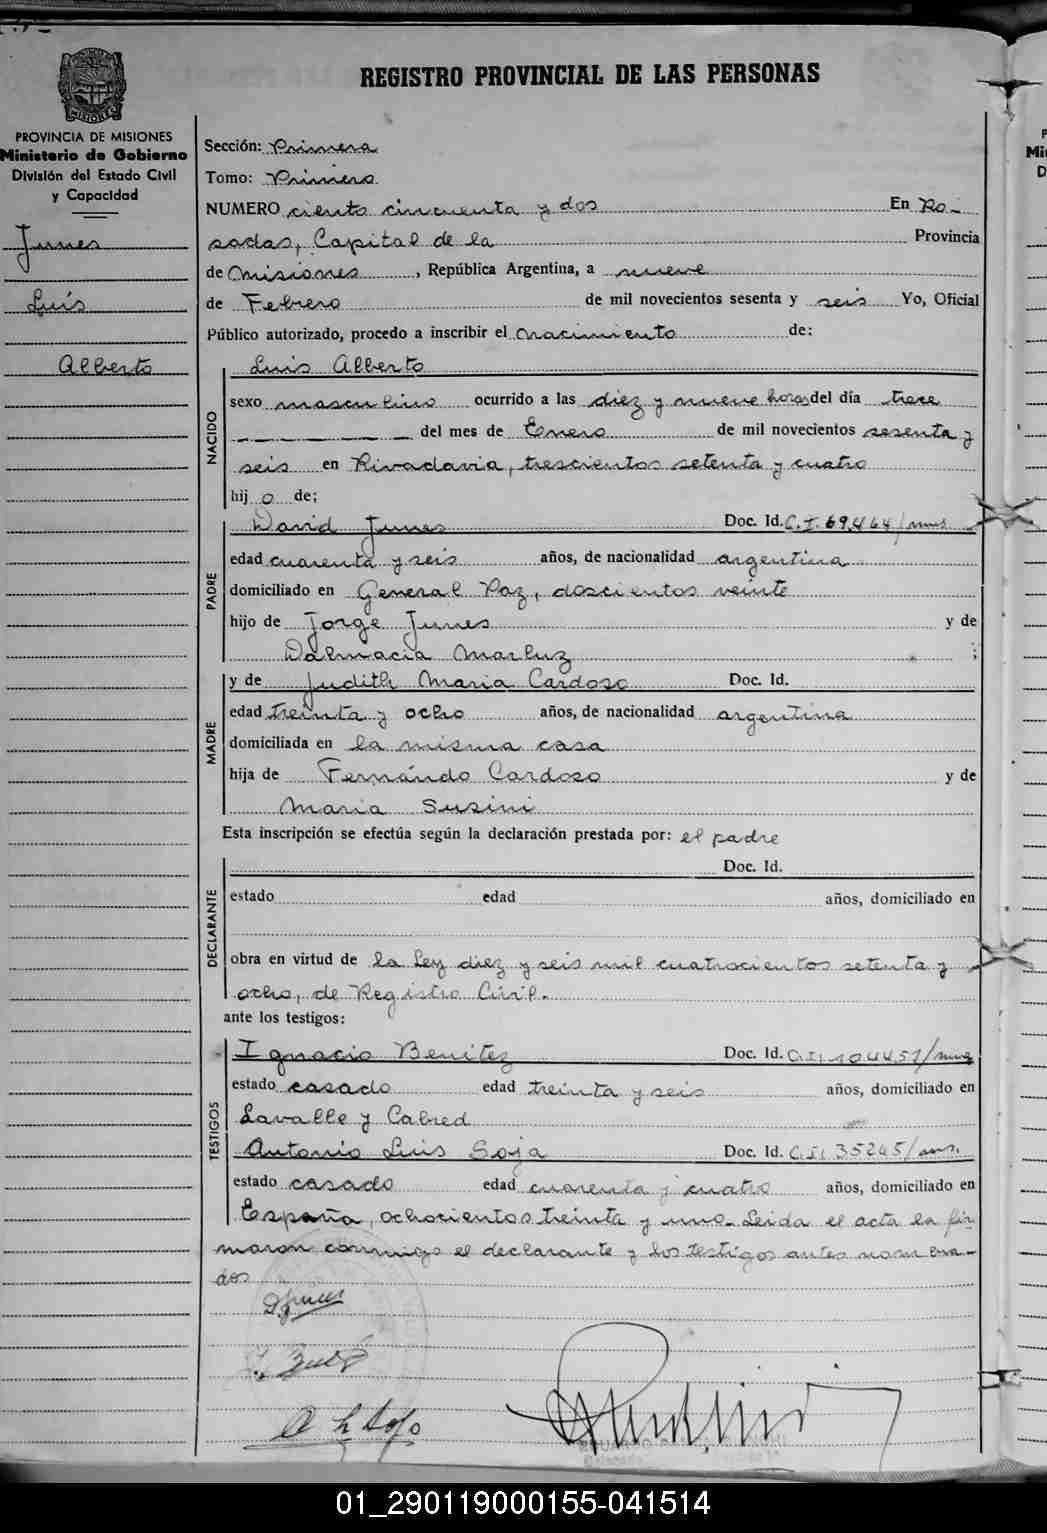 REGISTRO PROVINCIAL DE LAS PERSONAS
PROVINCIA DE MISIONES
Ministerio de Gobierno
División del Estado Civil
y Capacidad
Junes
Luís
Alberto
Sección: Primera
Tomo: Primero
NUMERO ciento cincuenta y dos En Po-
sadas, Capital de la Provincia
de Misiones, República Argentina, a nueve
de Febrero de mil novecientos sesenta y seis Yo, Oficial
Público autorizado, procedo a inscribir el nacimiento de:
NACIDO
Luis Alberto
sexo masculino ocurrido a las diez y nueve horas del día trece
del mes de Enero de mil novecientos sesenta y
seis en Rivadavia, trescientos setenta y cuatro
hij o de;
PADRE
David Junes Doc. Id. C.I. 69.464/mns
edad cuarenta y seis años, de nacionalidad argentina
domiciliado en General Paz, doscientos veinte
hijo de Jorge Junes y de
Dalmacia Marluz ;
MADRE
y de Judith Maria Cardoso Doc. Id.
edad treinta y ocho años, de nacionalidad argentina
domiciliada en la misma casa
hija de Fernándo Cardoso y de
Maria Susini
Esta inscripción se efectúa según la declaración prestada por: el padre
DECLARANTE
Doc. Id.
estado edad años, domiciliado en
obra en virtud de la Ley diez y seis mil cuatrocientos setenta y
ocho, de Registro Civil.
ante los testigos:
TESTIGOS
Ignacio Benítez Doc. Id. C.I. 104451/mns
estado casado edad treinta y seis años, domiciliado en
Lavalle y Cabred
Antonio Luis Soja Doc. Id. C.I. 35245/mns.
estado casado edad cuarenta y cuatro años, domiciliado en
España, ochocientos treinta y uno. Leida el acta la fir
maron conmigo el declarante y los testigos antes nombra-
dos
01_290119000155-041514